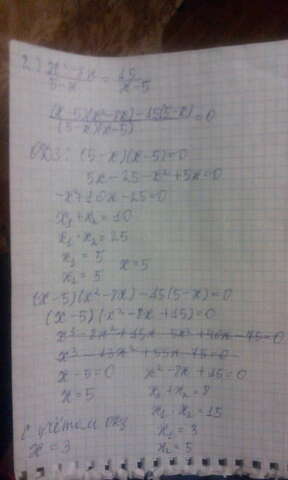 2) (x²-8x)/(5-x) = 15/(x-5)
((x-5)(x²-8x)-15(5-x))/((5-x)(x-5)) =0
ОДЗ: (5-x)(x-5)=0
5x-25-x²+5x=0
-x²+10x-25=0
x₁+x₂=10
x₁·x₂=25
x₁=5
x₂=5 x=5
(x-5)(x²-8x)-15(5-x)=0
(x-5)(x²-8x+15)=0
x³-8x²+15x-5x²+40x-75=0
x³-13x²+55x-75=0
x-5=0 x²-8x+15=0
x=5 x₁+x₂=8
x₁·x₂=15
с учётом одз x₁=3
x=3 x₂=5